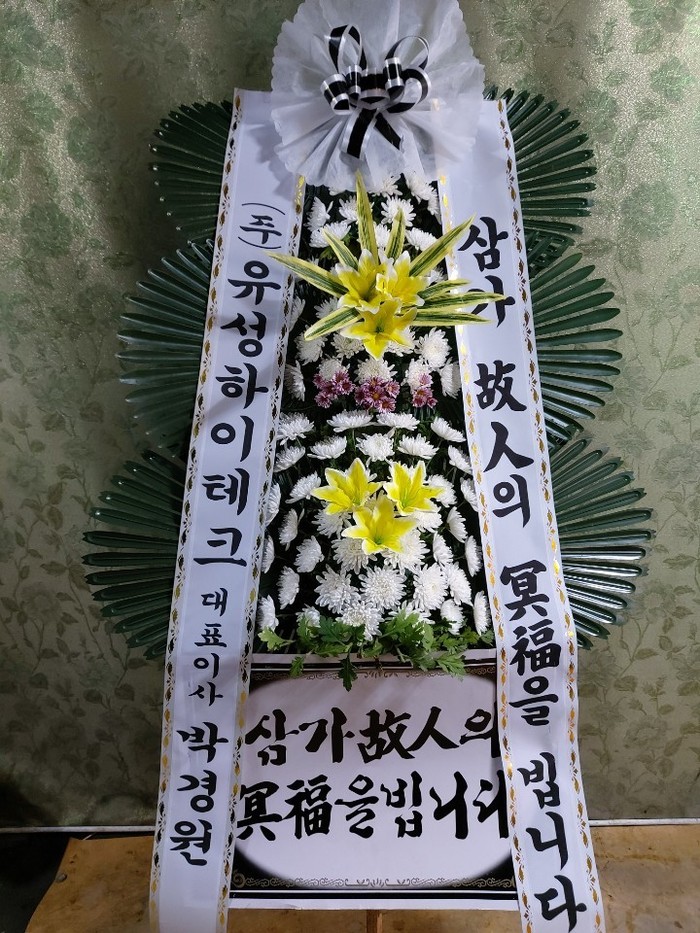 (주)유성하이테크 대표이사 박경원
삼가 故人의 冥福을 빕니다
삼가故人의
冥福을빕니다